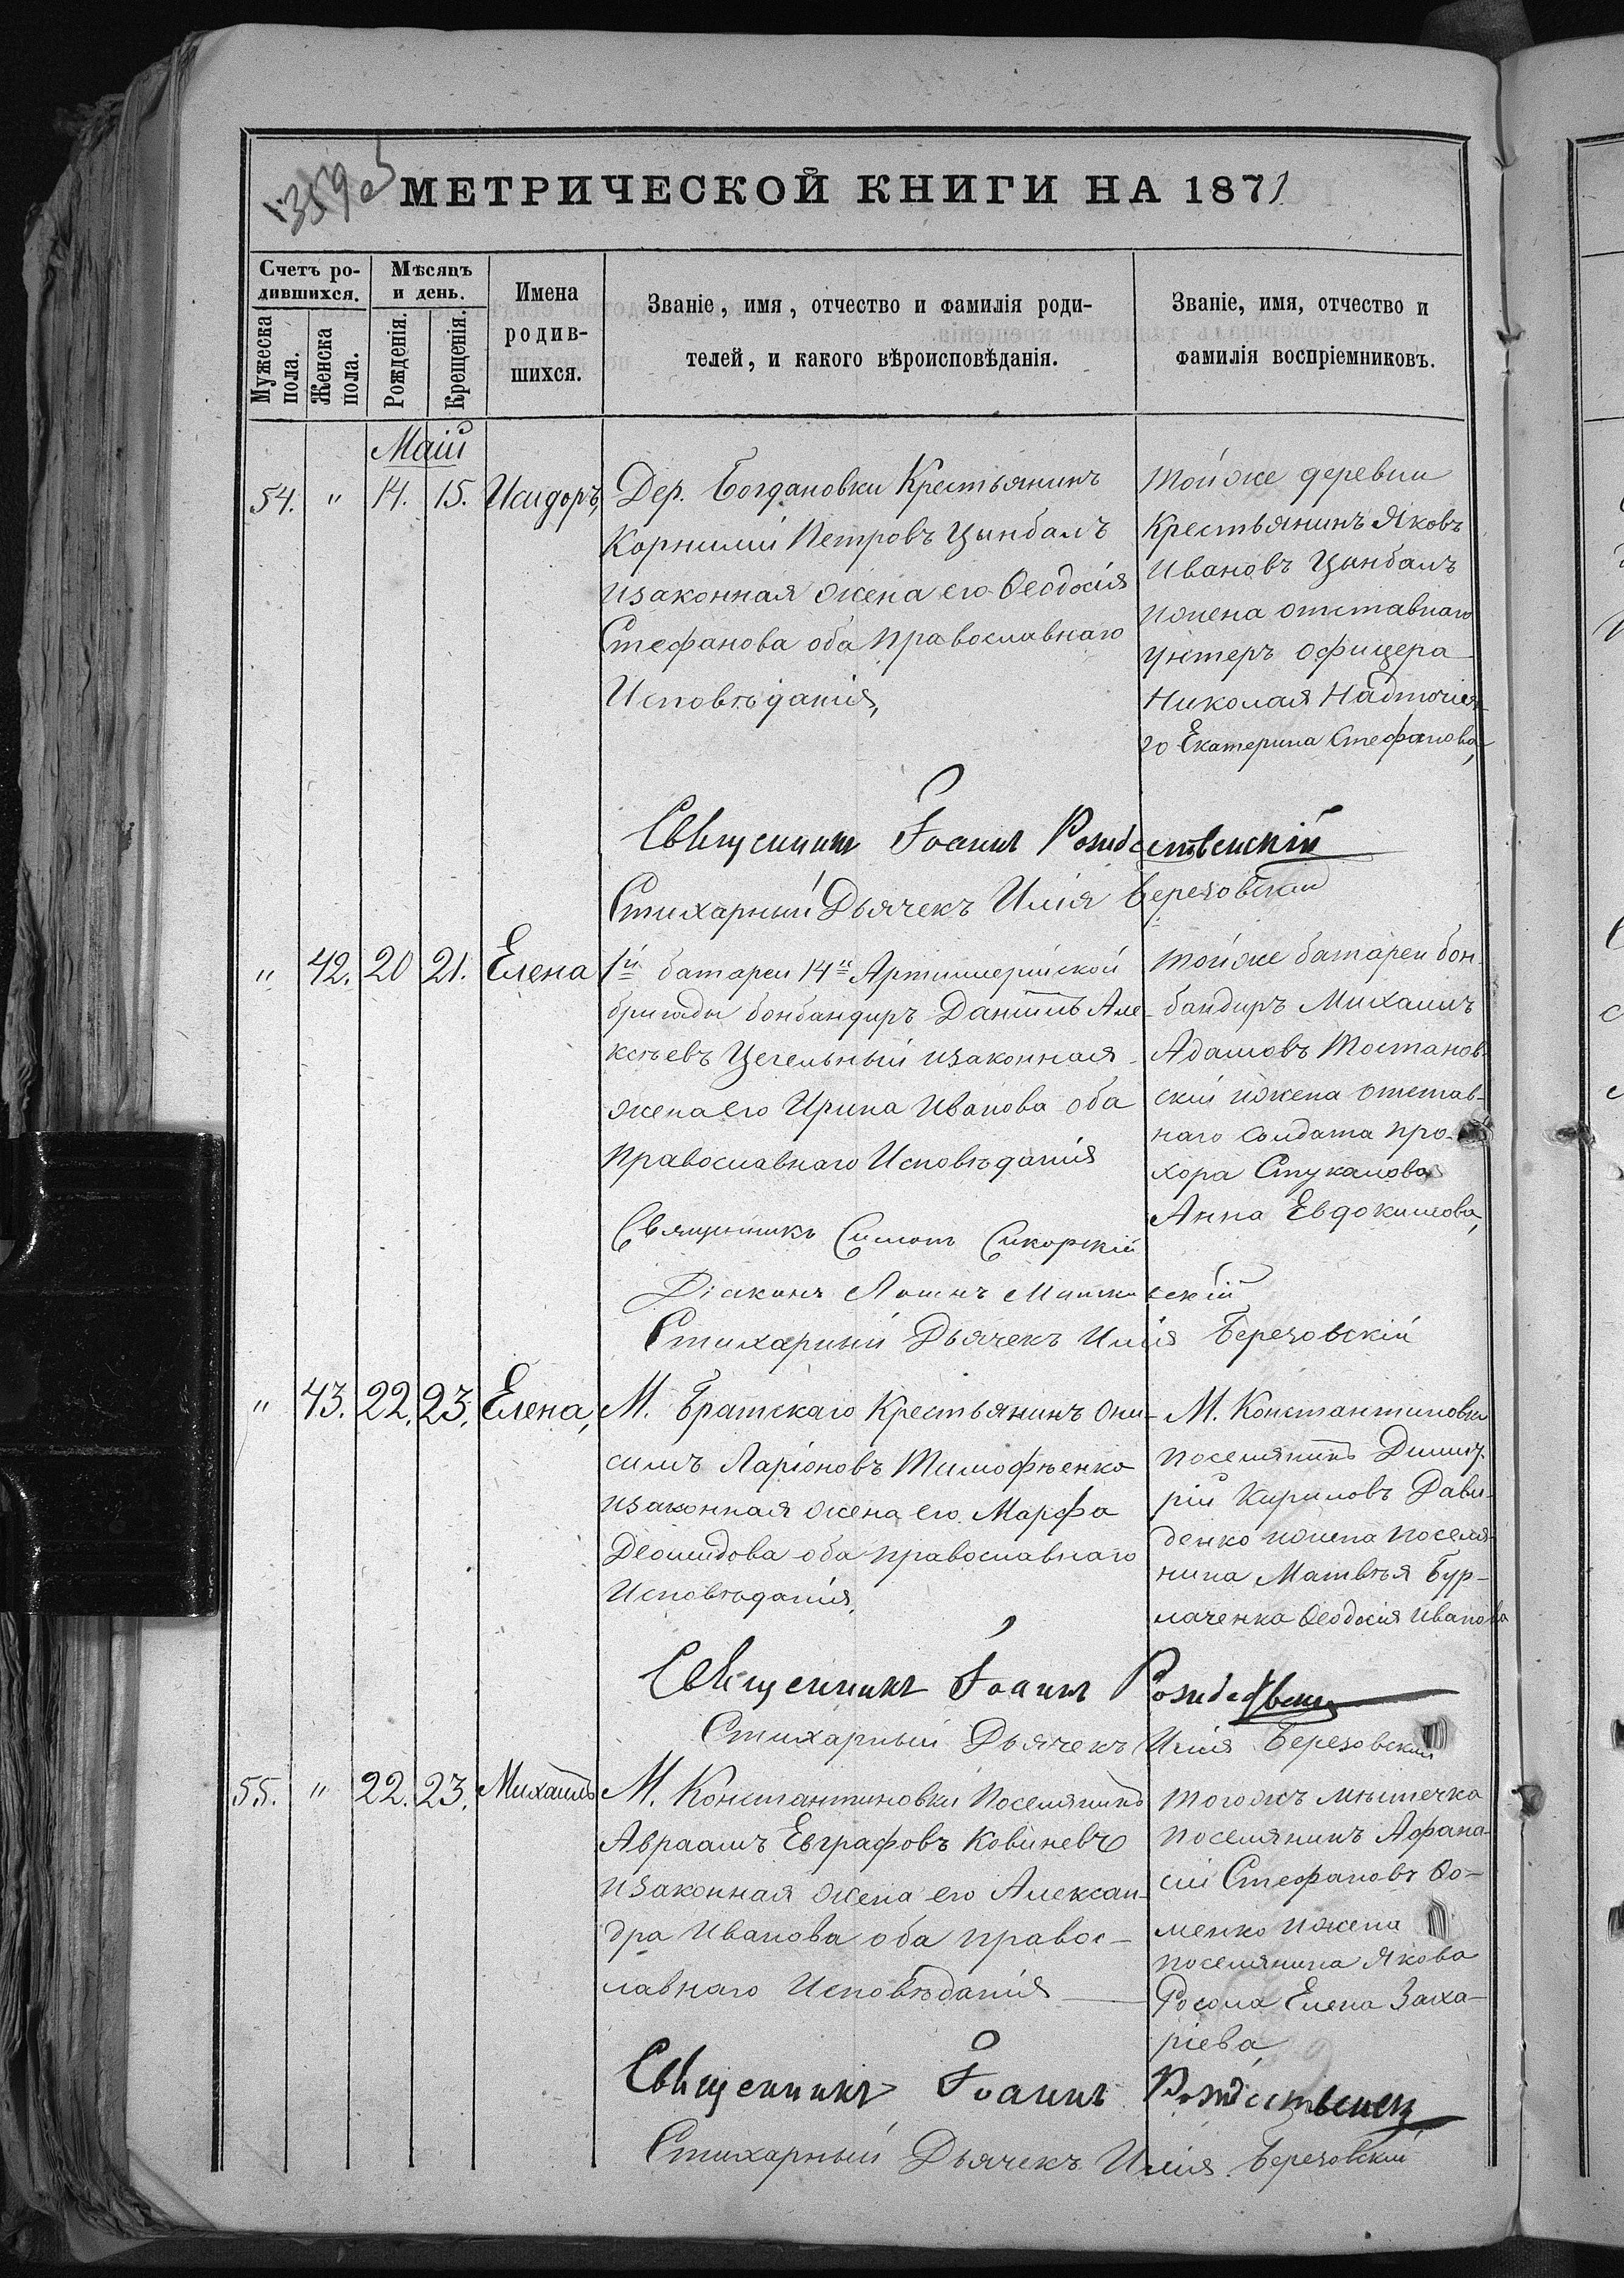 1359 об
МЕТРИЧЕСКОЙ КНИГИ НА 1871
Счетъ ро-
дившихся.
Мужеска
пола.
Женска
пола.
Мѣсяцъ
и день.
Рожденія.
Крещенія.
Имена
родив-
шихся.
Званіе, имя, отчество и фамилія роди-
телей, и какого вѣроисповѣданія.
Званіе, имя, отчество и
фамилія воспріемниковъ.
Маій
54. " 14. 15. Исидоръ,
Дер. Богдановки Крестьянинъ
Корнилій Петровъ Цынбалъ
изаконная жена его Ѳеодосія
Стефанова оба православнаго
Исповѣданія,
Тойже деревни
Крестьянинъ Яковъ
Ивановъ Цынбалъ
ижена отставнаго
унтеръ офицера
Николая Надточія-
го Екатерина Стефанова,
Священникъ Іоаннъ Рождественскій
Стихарный Дьячекъ Илія Березовскій
" 42. 20 21. Елена
1й батареи 14й Артиллерійской
бригады бонбандиръ Даніилъ Але-
ксѣевъ Цегельный изаконная
жена его Ирина Иванова оба
Православнаго Исповѣданія
тойже батареи бон-
бандиръ Михаилъ
Адамовъ Тостанов-
скій ижена отстав-
наго солдата Про-
хора Стукалова
Анна Евдокимова,
Священникъ Симонъ Сикорскій
Діаконъ
Стихарный Дьячекъ Илія Березовскій
" 43. 22. 23. Елена,
М. Братскаго Крестьянинъ Они-
симъ Ларіоновъ Тимофѣенко
изаконная жена его Марфа
Деомидова оба православнаго
Исповѣданія,
М. Константиновки
поселянинъ Димит-
рій Кириловъ Дави-
денко ижена поселя-
нина Матвѣя Бур-
лаченка Ѳеодосія Иванова
Священникъ Іоаннъ Рождественск
Стихарный Дьячекъ Илія Березовскій
55. " 22. 23. Михаилъ
М. Константиновки Поселянинъ
Авраамъ Евграфовъ Ковиневъ
изаконная жена его Алексан-
дра Иванова оба правос-
лавнаго Исповѣданія
тогожъ мѣстечка
поселянинъ Афана-
сій Стефановъ Ѳо-
менко ижена
поселянина Якова
Росола Елена Заха-
ріева
Священникъ Іоаннъ Рождественск
Стихарный Дьячекъ Илія Березовскій